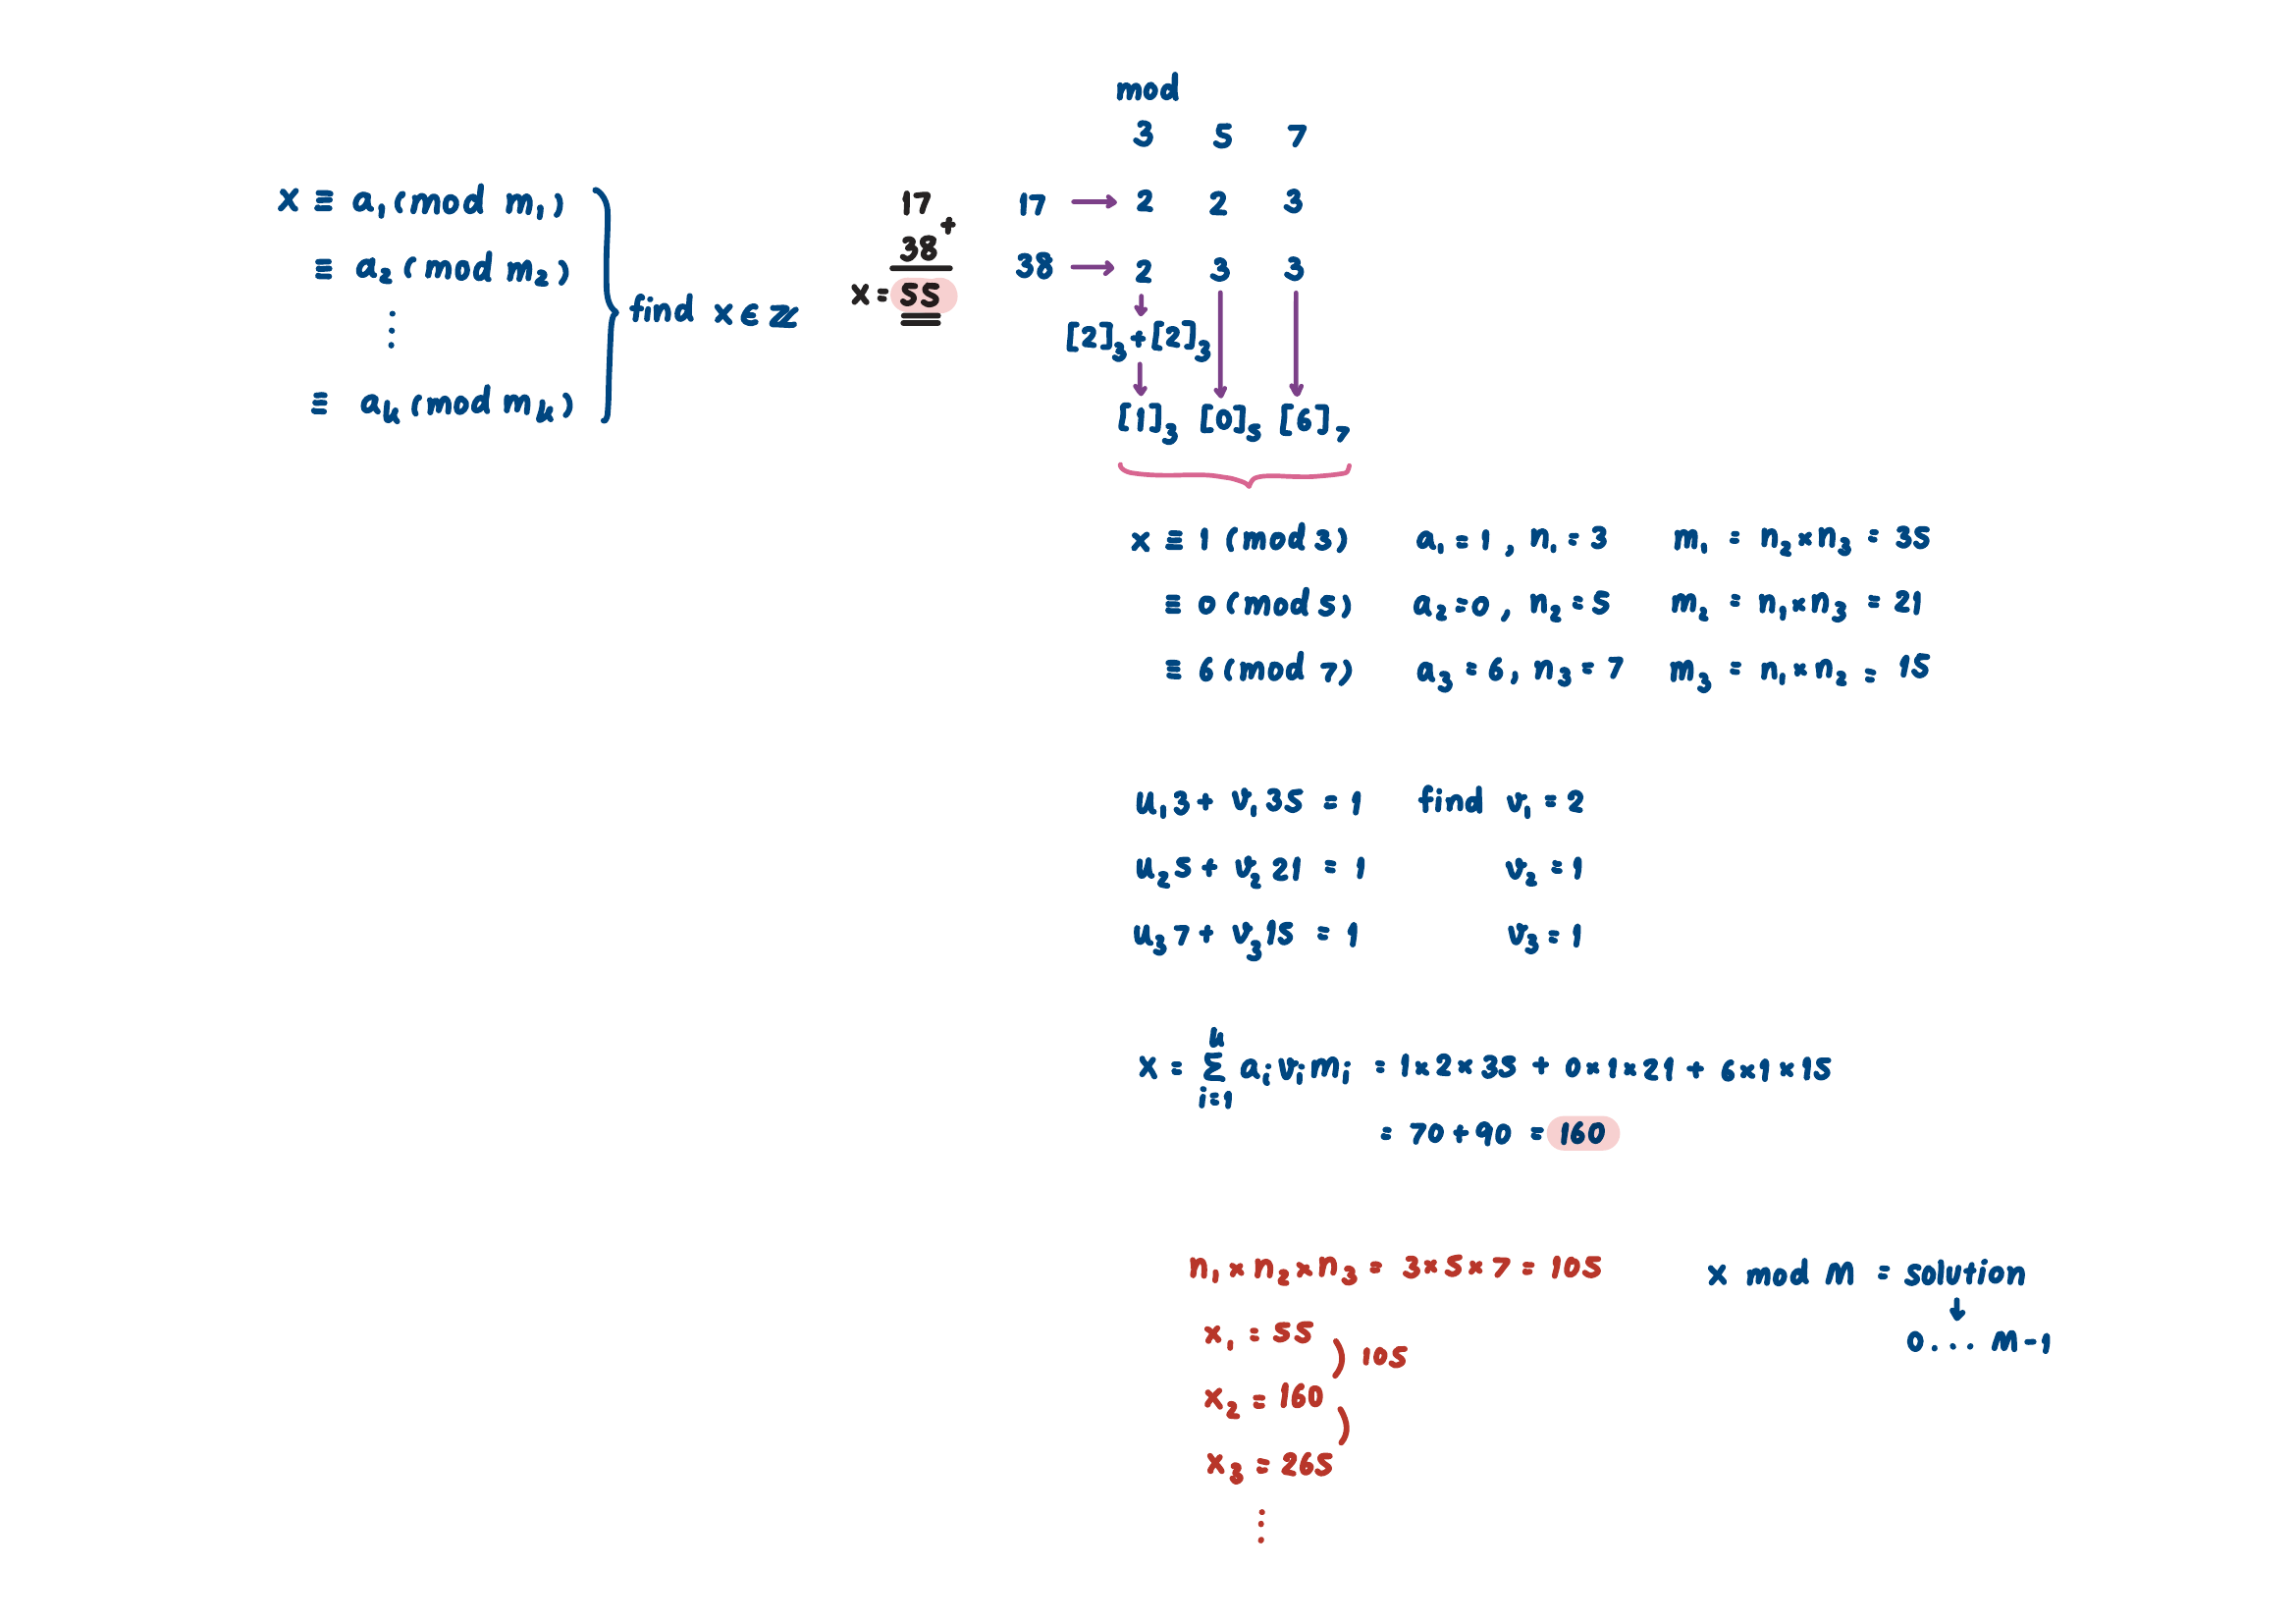 x ≡ a₁ (mod m₁)
≡ a₂ (mod m₂)
⋮
≡ aₖ (mod mₖ)
find x ∈ ℤ
17
+
38
x = 55
mod
3 5 7
17 → 2 2 3
38 → 2 3 3
[2]₃ + [2]₃
[1]₃ [0]₅ [6]₇
x ≡ 1 (mod 3) a₁ = 1 , n₁ = 3 m₁ = n₂ × n₃ = 35
≡ 0 (mod 5) a₂ = 0 , n₂ = 5 m₂ = n₁ × n₃ = 21
≡ 6 (mod 7) a₃ = 6 , n₃ = 7 m₃ = n₁ × n₂ = 15
u₁3 + v₁35 = 1 find v₁ = 2
u₂5 + v₂21 = 1 v₂ = 1
u₃7 + v₃15 = 1 v₃ = 1
k
x = Σ aᵢvᵢmᵢ = 1×2×35 + 0×1×21 + 6×1×15
i=1
= 70 + 90 = 160
n₁ × n₂ × n₃ = 3×5×7 = 105
x₁ = 55
) 105
x₂ = 160
)
x₃ = 265
⋮
x mod M = solution
↓
0 . . . M-1